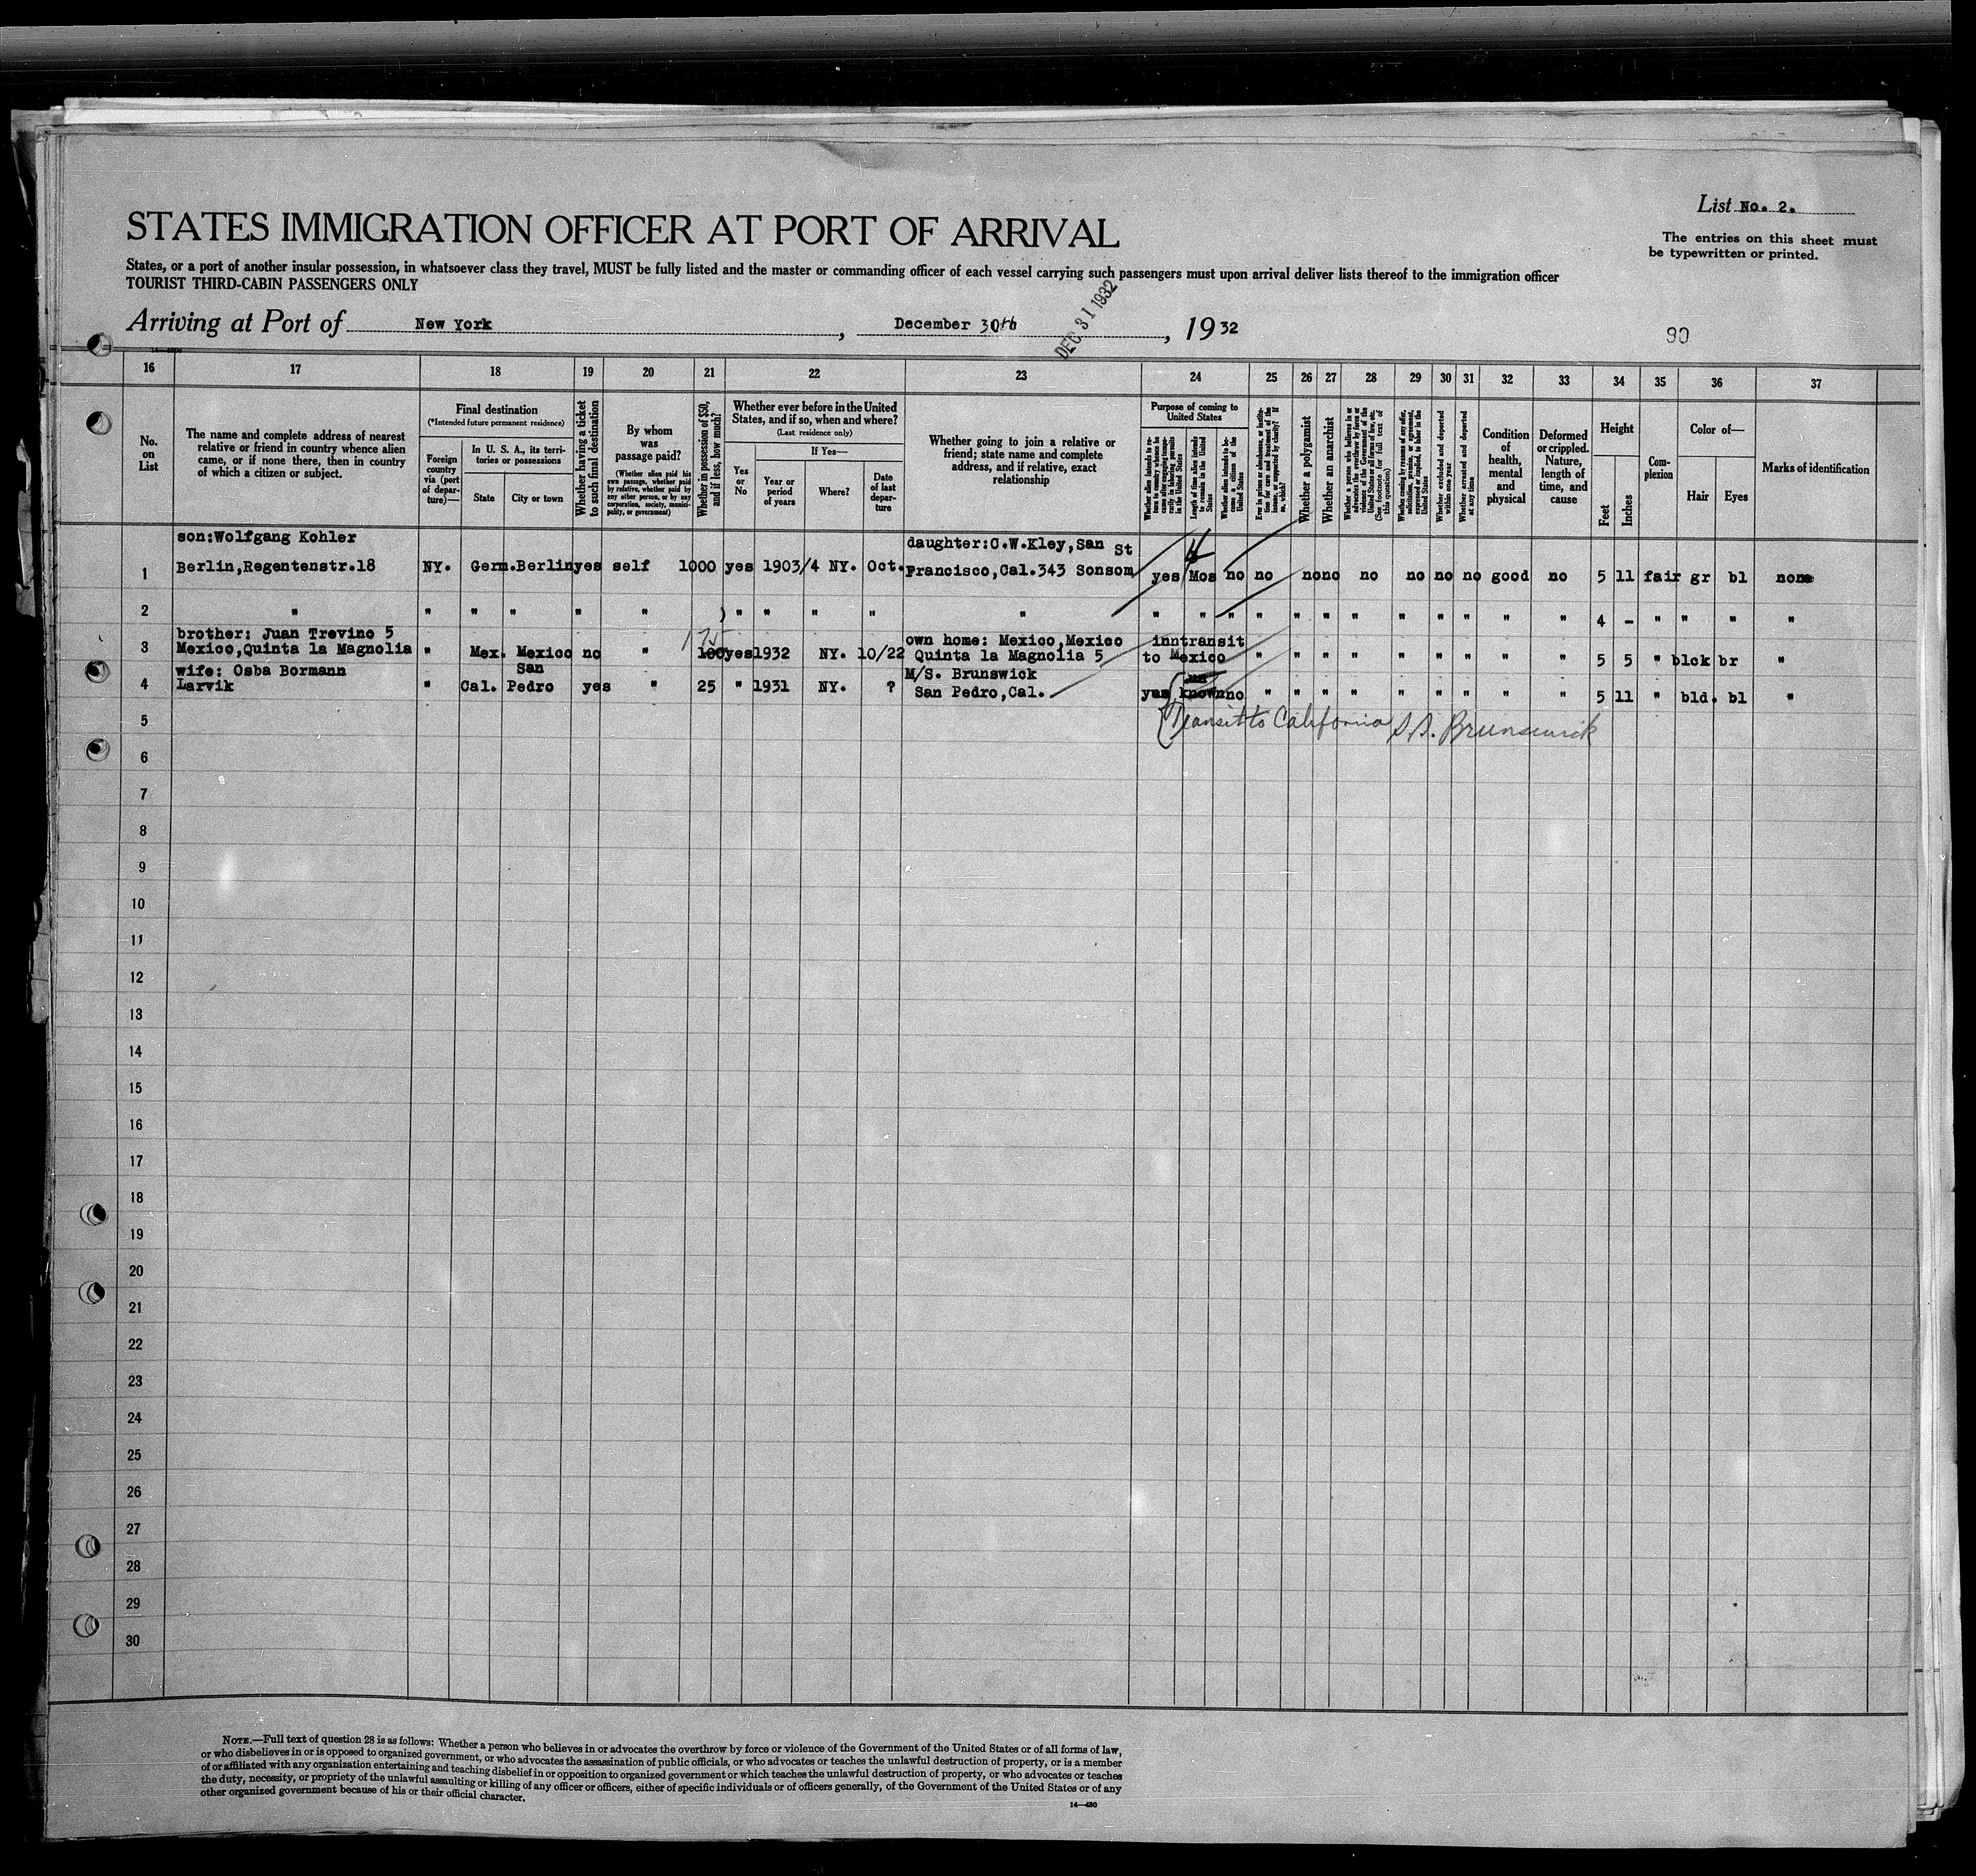 List No. 2.
STATES IMMIGRATION OFFICER AT PORT OF ARRIVAL
The entries on this sheet must
be typewritten or printed.
States, or a port of another insular possession, in whatsoever class they travel, MUST be fully listed and the master or commanding officer of each vessel carrying such passengers must upon arrival deliver lists thereof to the immigration officer
TOURIST THIRD-CABIN PASSENGERS ONLY
Arriving at Port of New York, December 30th, 1932
DEC 31 1932
90
16 17 18 19 20 21 22 23 24 25 26 27 28 29 30 31 32 33 34 35 36 37
No. on List
The name and complete address of nearest
relative or friend in country whence alien
came, or if none there, then in country
of which a citizen or subject.
Final destination
(*Intended future permanent residence)
Foreign country via (port of departure)—
In U. S. A., its territories or possessions
State
City or town
Whether having a ticket to such final destination
By whom was passage paid?
(Whether alien paid his own passage, whether paid by relative, whether paid by any other person, or by any corporation, society, municipality, or government)
Whether in possession of $50, and if less, how much?
Whether ever before in the United
States, and if so, when and where?
(Last residence only)
Yes or No
If Yes—
Year or period of years
Where?
Date of last departure
Whether going to join a relative or
friend; state name and complete
address, and if relative, exact
relationship
Purpose of coming to
United States
Whether alien intends to return to country whence he came after engaging temporarily in laboring pursuits in the United States
Length of time alien intends to remain in the United States
Whether alien intends to become a citizen of the United States
Ever in prison or almshouse, or institution for care and treatment of the insane, or supported by charity? If so, which?
Whether a polygamist
Whether an anarchist
Whether a person who believes in or advocates the overthrow by force or violence of the Government of the United States or all forms of law, etc. (See footnote for full text of this question)
Whether coming by reason of any offer, solicitation, promise, or agreement, expressed or implied, to labor in the United States
Whether excluded and deported within one year
Whether arrested and deported at any time
Condition of health, mental and physical
Deformed or crippled. Nature, length of time, and cause
Height
Feet
Inches
Complexion
Color of—
Hair
Eyes
Marks of identification
son:Wolfgang Kohler daughter:C.W.Kley,San St
1 Berlin,Regentenstr.18 NY. Germ.Berlin yes self 1000 yes 1903/4 NY. Oct. Francisco,Cal.343 Sonsom yes Mos no no no no no no no no good no 5 11 fair gr bl none
2 " " " " " " " " " " " " " " " " " " " " " " " 4 - " " " "
brother: Juan Trevino 5 175 own home: Mexico,Mexico inntransit
3 Mexico,Quinta la Magnolia " Mex. Mexico no " 100 yes 1932 NY. 10/22 Quinta la Magnolia 5 to Mexico " " " " " " " " " 5 5 " blck br "
wife: Osba Bormann San M/S. Brunswick un
4 Larvik " Cal. Pedro yes " 25 " 1931 NY. ? San Pedro,Cal. yes known no " " " " " " " " " 5 11 " bld. bl "
5 Transit to California S.S. Brunswick
6
7
8
9
10
11
12
13
14
15
16
17
18
19
20
21
22
23
24
25
26
27
28
29
30
NOTE.—Full text of question 28 is as follows: Whether a person who believes in or advocates the overthrow by force or violence of the Government of the United States or of all forms of law,
or who disbelieves in or is opposed to organized government, or who advocates the assassination of public officials, or who advocates or teaches the unlawful destruction of property, or is a member
of or affiliated with any organization entertaining and teaching disbelief in or opposition to organized government or which teaches the unlawful destruction of property, or who advocates or teaches
the duty, necessity, or propriety of the unlawful assaulting or killing of any officer or officers, either of specific individuals or of officers generally, of the Government of the United States or of any
other organized government because of his or their official character.
14—430